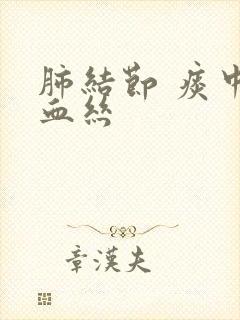 肺結節 痰中
血絲
章漢夫